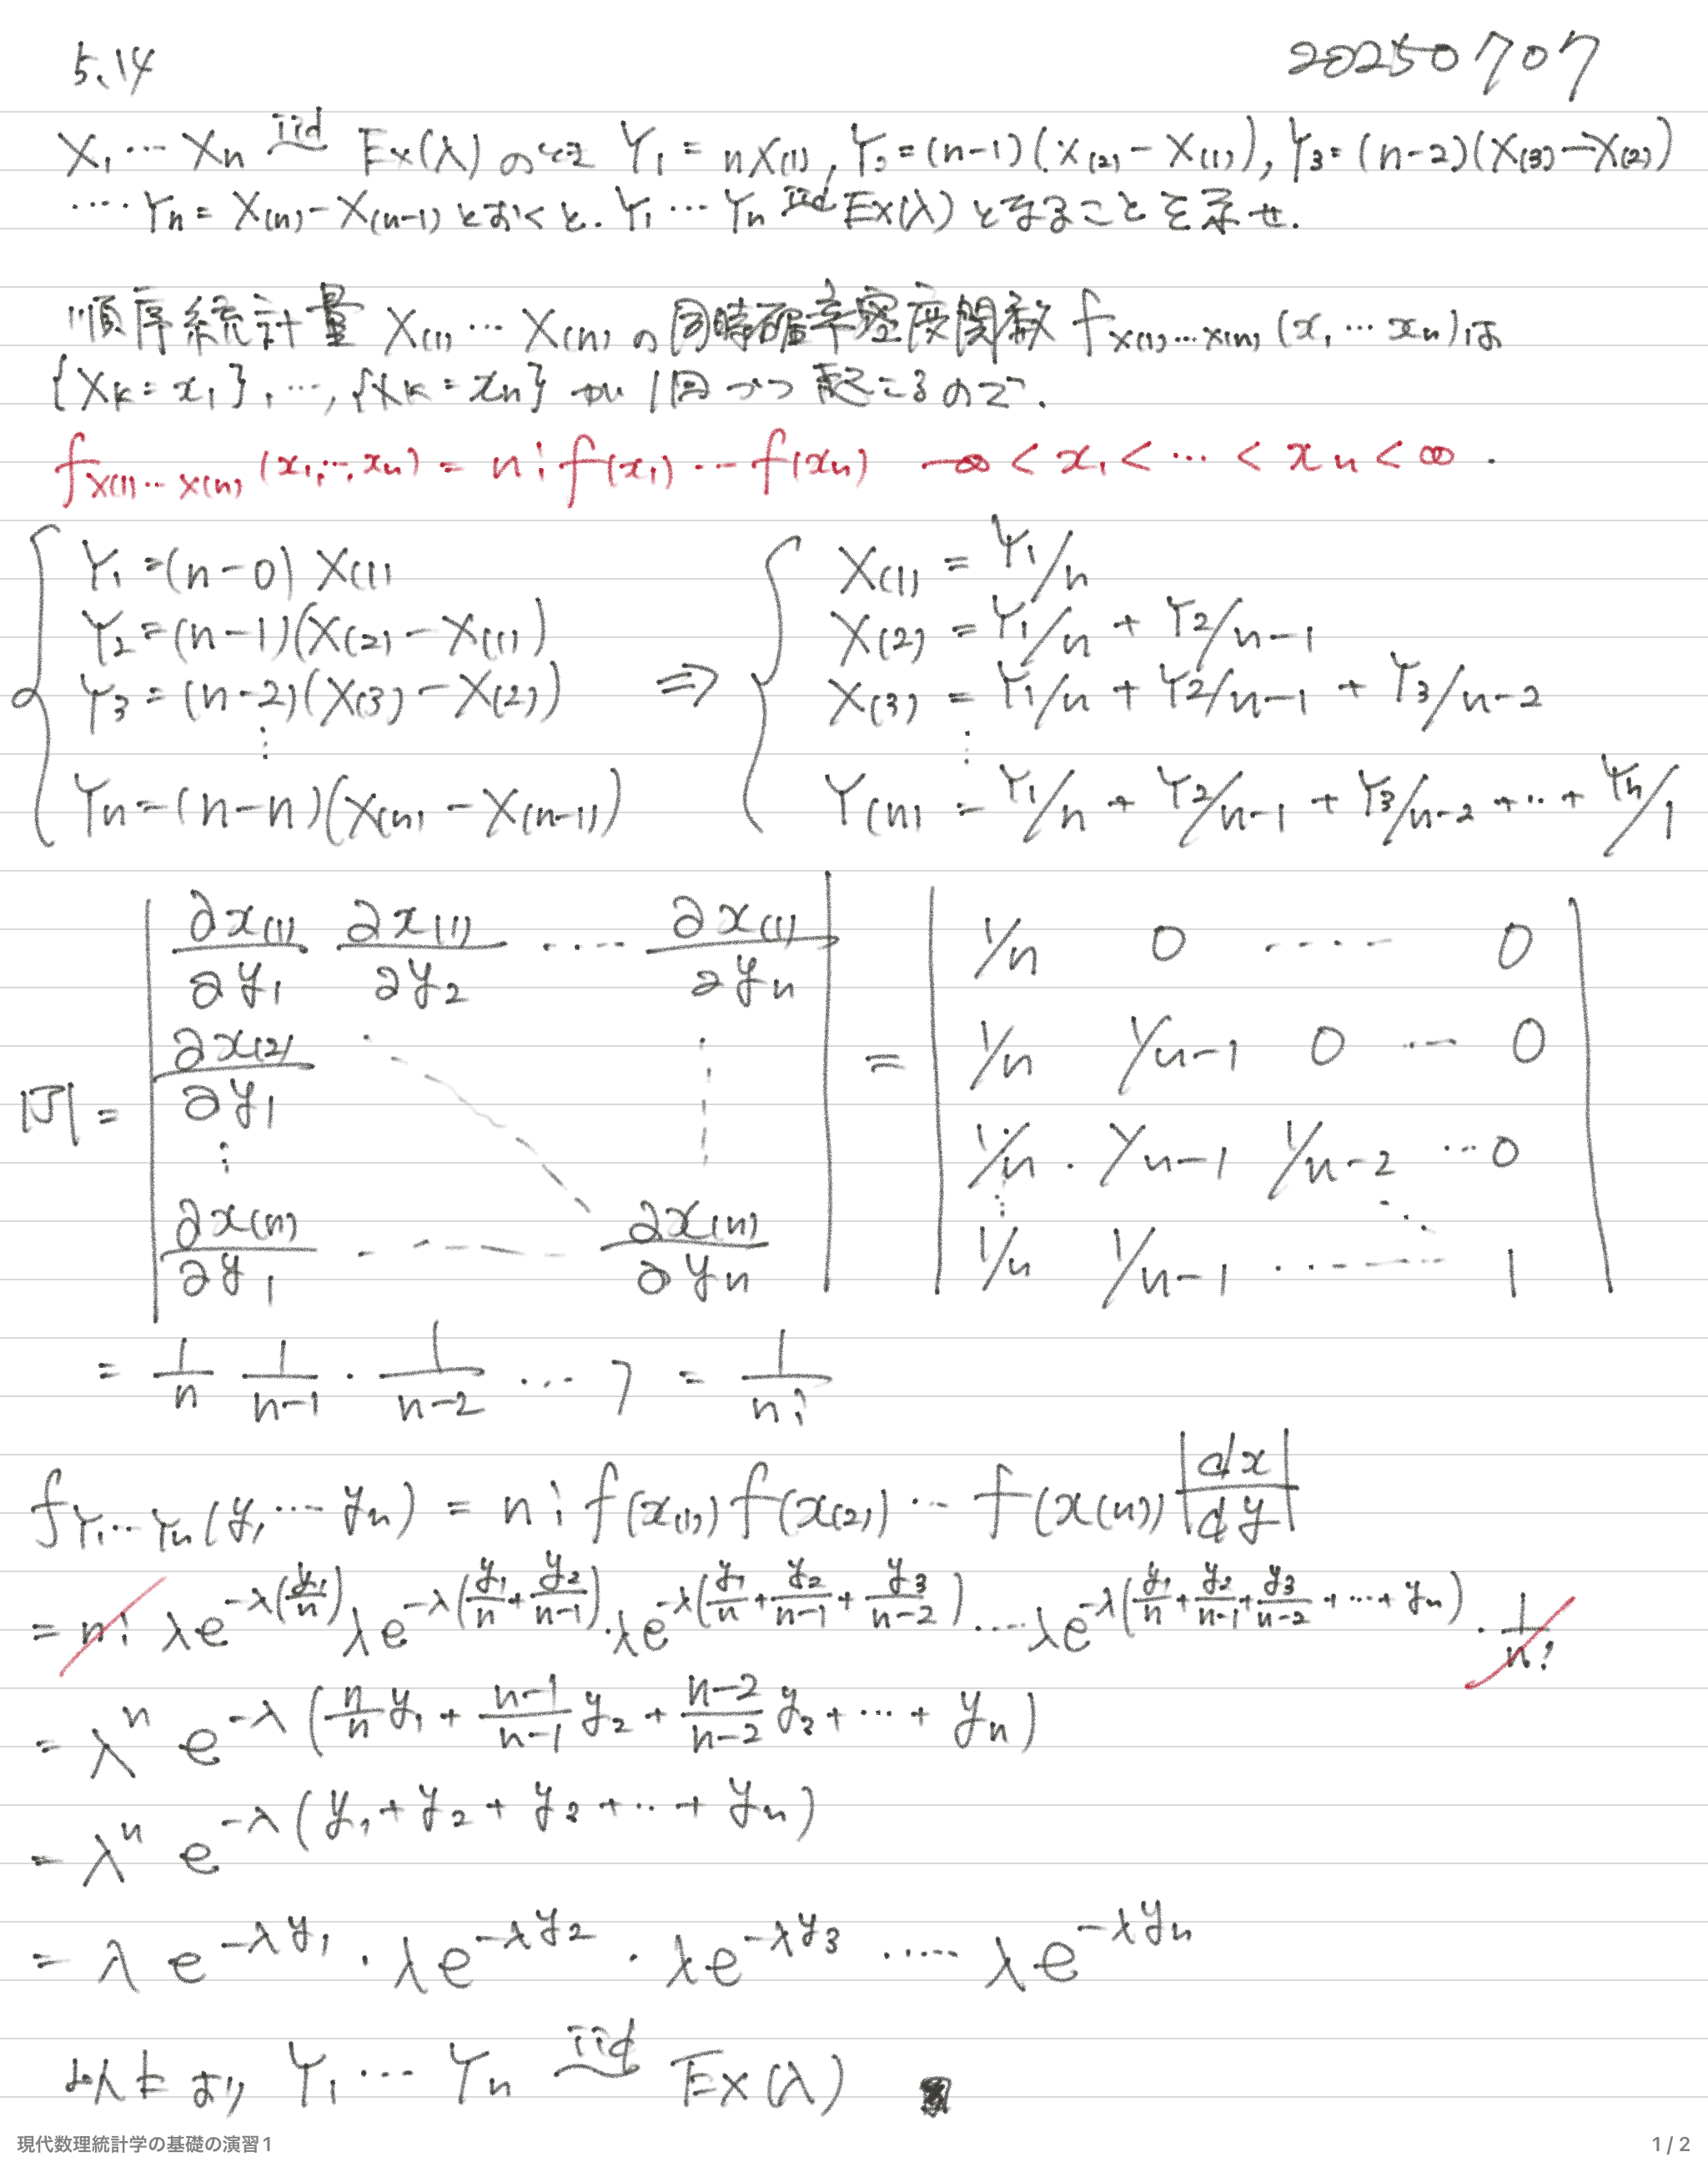 5.14 20250707
X₁ … Xn iid~ Ex(λ) のとき Y₁ = nX(1), Y₂ = (n-1)(X(2) - X(1)), Y₃ = (n-2)(X(3) - X(2))
…. Yn = X(n) - X(n-1) とおくと. Y₁ … Yn iid~ Ex(λ) となることを示せ.
順序統計量 X(1) … X(n) の同時確率密度関数 f_X(1)…X(n) (x₁ … xn) は
{Xk = x₁}, …, {Xk = xn} が 1回づつ 起こるので.
f_X(1)…X(n) (x₁, …, xn) = n! f(x₁) … f(xn) -∞ < x₁ < … < xn < ∞ .
Y₁ = (n-0) X(1)
Y₂ = (n-1)(X(2) - X(1))
Y₃ = (n-2)(X(3) - X(2))
⋮
Yn = (n-n)(X(n) - X(n-1))
⇒
X(1) = Y₁/n
X(2) = Y₁/n + Y₂/n-1
X(3) = Y₁/n + Y₂/n-1 + Y₃/n-2
⋮
Y(n) = Y₁/n + Y₂/n-1 + Y₃/n-2 + … + Yn/1
|J| = | ∂x(1)/∂y₁ ∂x(1)/∂y₂ …. ∂x(1)/∂yn |
∂x(2)/∂y₁ ⋱ ⋮
⋮
∂x(n)/∂y₁ … ∂x(n)/∂yn
= | 1/n 0 …. 0 |
1/n 1/n-1 0 … 0
1/n . 1/n-1 1/n-2 … 0
⋮ ⋱
1/n 1/n-1 …. 1
= 1/n 1/n-1 · 1/n-2 … 1 = 1/n!
f_Y₁…Yn (y₁ … yn) = n! f(x(1)) f(x(2)) … f(x(n)) |dx/dy|
= n! λe^-λ(y₁/n) λe^-λ(y₁/n + y₂/n-1) · λe^-λ(y₁/n + y₂/n-1 + y₃/n-2) …. λe^-λ(y₁/n + y₂/n-1 + y₃/n-2 + … + yn) · 1/n!
= λ^n e^-λ(n/n y₁ + n-1/n-1 y₂ + n-2/n-2 y₃ + … + yn)
= λ^n e^-λ(y₁ + y₂ + y₃ + … + yn)
= λ e^-λy₁ · λe^-λy₂ · λe^-λy₃ ….. λe^-λyn
以上より Y₁ … Yn iid~ Ex(λ) ■
現代数理統計学の基礎の演習1 1 / 2